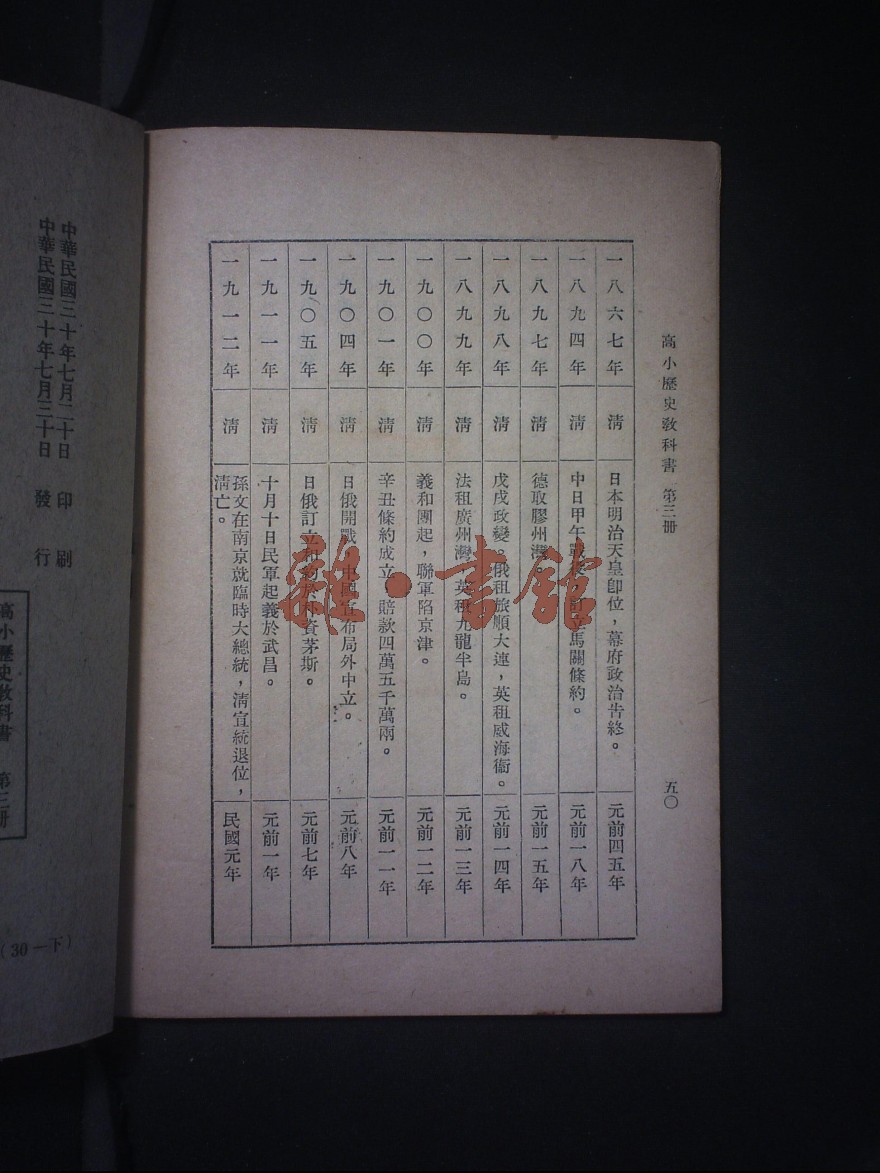 高小歷史敎科書 第三册
五〇
一八六七年 淸 日本明治天皇卽位，幕府政治吿終。 元前四五年
一八九四年 淸 中日甲午戰 訂立馬關條約。 元前一八年
一八九七年 淸 德取膠州灣。 元前一五年
一八九八年 淸 戊戌政變。俄租旅順大連，英租威海衞。 元前一四年
一八九九年 淸 法租廣州灣，英租九龍半島。 元前一三年
一九〇〇年 淸 義和團起，聯軍陷京津。 元前一二年
一九〇一年 淸 辛丑條約成立，賠款四萬五千萬兩。 元前一一年
一九〇四年 淸 日俄開戰，中國宣布局外中立。 元前八年
一九〇五年 淸 日俄訂立和約於朴資茅斯。 元前七年
一九一一年 淸 十月十日民軍起義於武昌。 元前一年
一九一二年 淸 孫文在南京就臨時大總統，淸宣統退位，
淸亡。 民國元年
中華民國三十年七月二十日 印刷
中華民國三十年七月三十日 發行
高小歷史敎科書 第三册
（30—下）
雜·書館